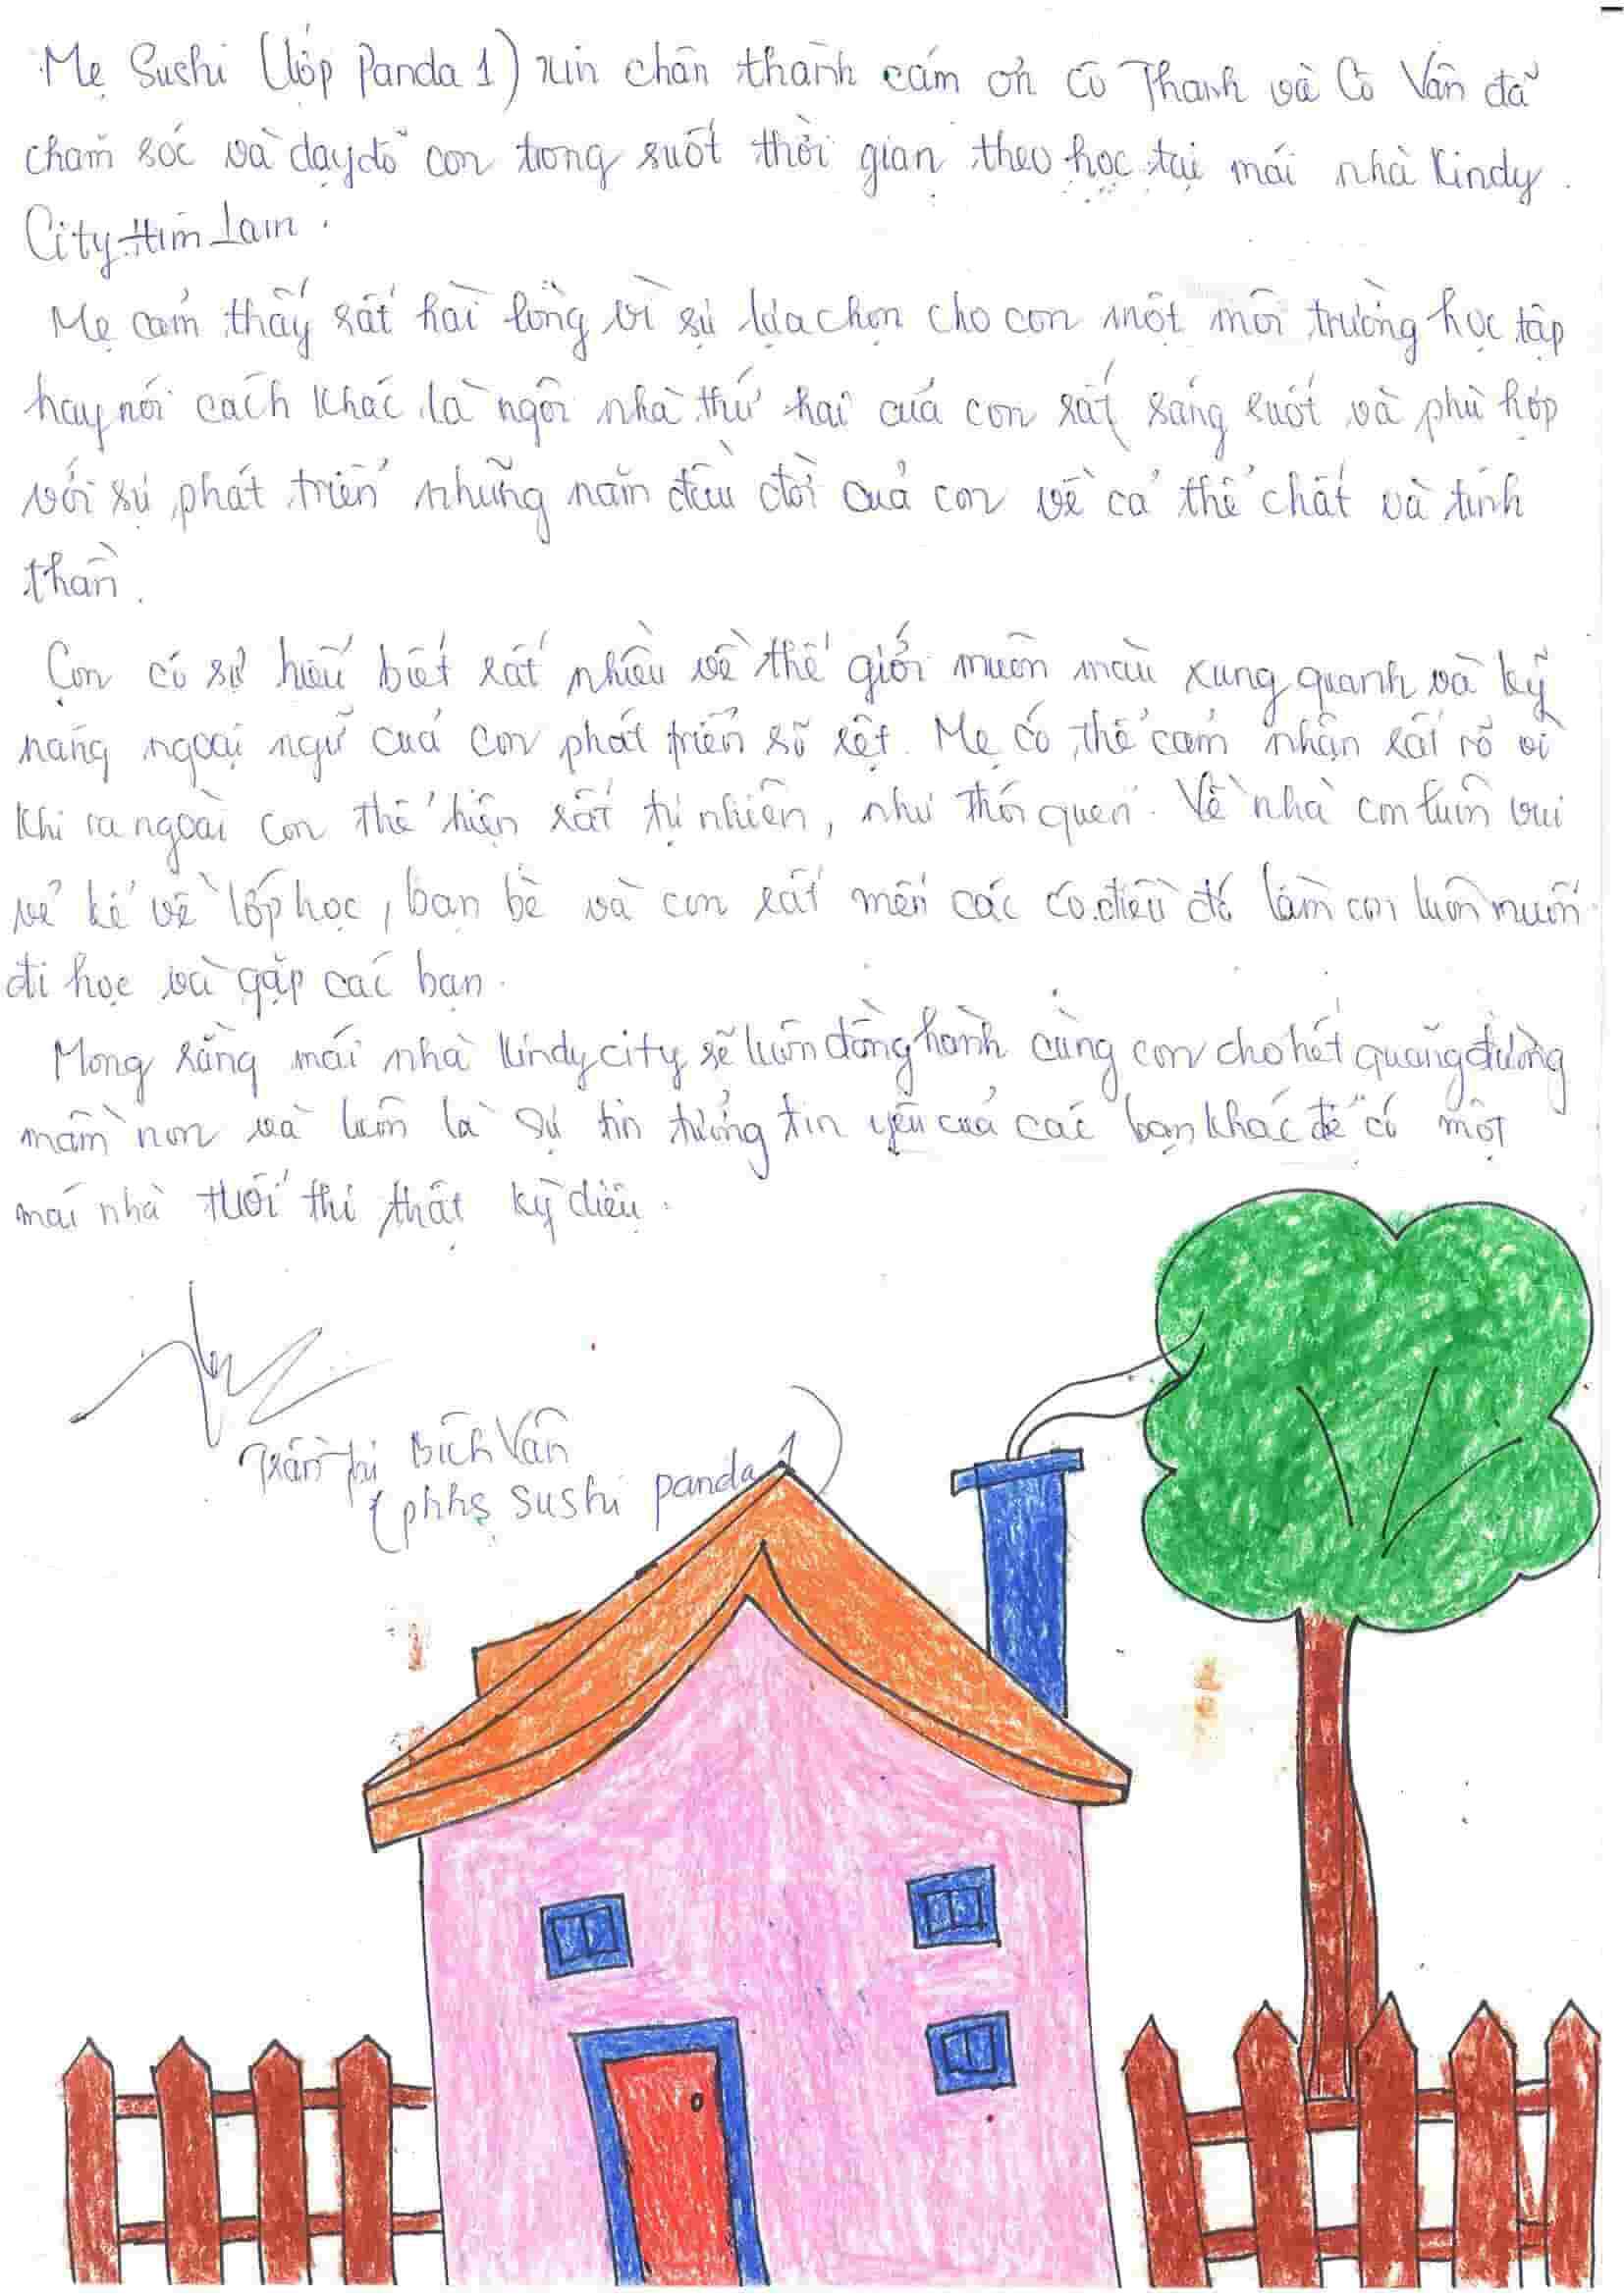 Mẹ Sushi (lớp Panda 1) xin chân thành cám ơn Cô Thanh và Cô Vân đã
chăm sóc và dạy dỗ con trong suốt thời gian theo học tại mái nhà Kindy
City Him Lam.
Mẹ cảm thấy rất hài lòng vì sự lựa chọn cho con một môi trường học tập
hay nói cách khác là ngôi nhà thứ hai của con rất sáng suốt và phù hợp
với sự phát triển những năm đầu đời của con về cả thể chất và tinh
thần.
Con có sự hiểu biết rất nhiều về thế giới muôn màu xung quanh và kỹ
năng ngoại ngữ của con phát triển rõ rệt. Mẹ có thể cảm nhận rất rõ vì
khi ra ngoài con thể hiện rất tự nhiên, như thói quen. Về nhà con luôn vui
vẻ kể về lớp học, bạn bè và con rất mến các cô. điều đó làm con luôn muốn
đi học và gặp các bạn.
Mong rằng mái nhà Kindycity sẽ luôn đồng hành cùng con cho hết quãng đường
mầm non và luôn là sự tin tưởng tin yêu của các bạn khác để có một
mái nhà tuổi thơ thật kỳ diệu.
Trần Thị Bích Vân
(phhs Sushi panda 1)